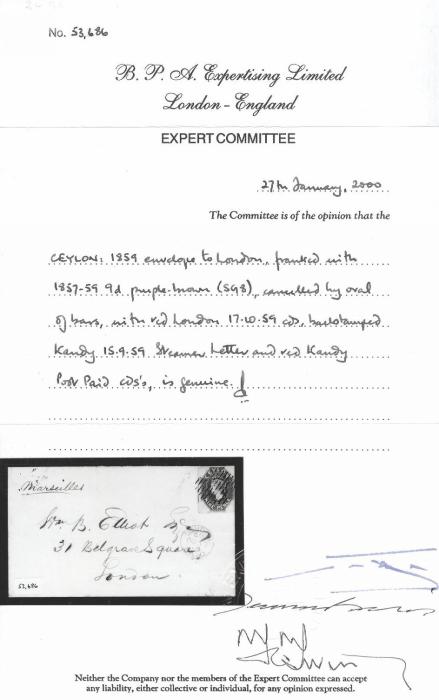 No. 53,686
B. P. A. Expertising Limited
London - England
EXPERT COMMITTEE
27th January, 2000
The Committee is of the opinion that the
CEYLON: 1859 envelope to London, franked with
1857-59 9d purple-brown (SG8), cancelled by oval
of bars, with red London 17.10.59 cds, backstamped
Kandy 15.9.59 Steamer Letter and red Kandy
Post Paid cds's, is genuine.
Marseilles
Wm B. Elliot Esq
31 Belgrave Square
London
53,686
Neither the Company nor the members of the Expert Committee can accept
any liability, either collective or individual, for any opinion expressed.